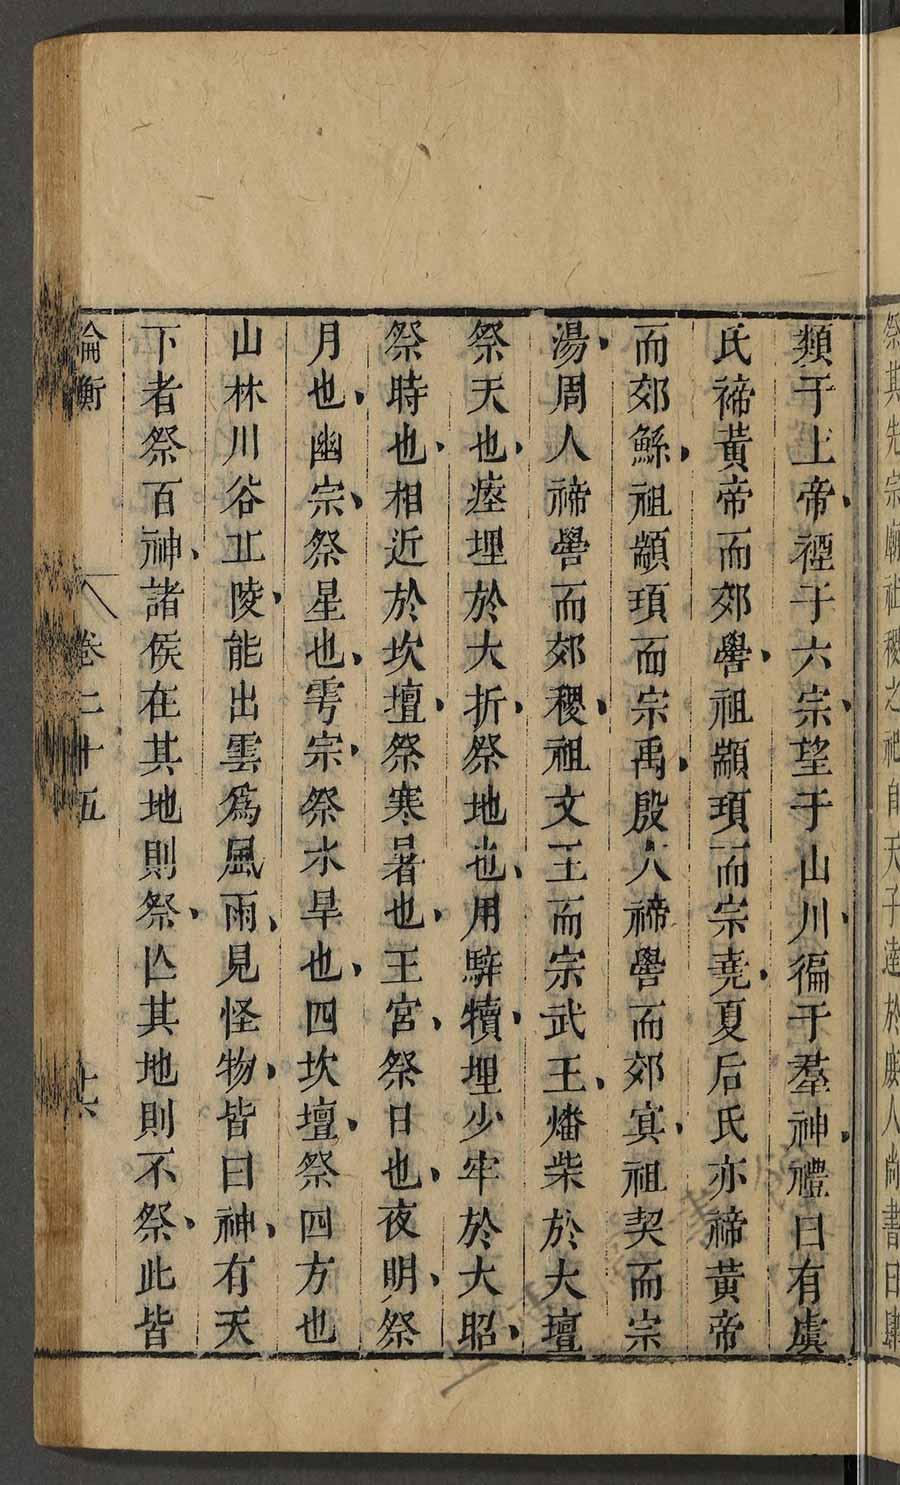 祭其先宗廟社稷之祀自天子達於庶人尚書曰肆
類于上帝禋于六宗望于山川徧于羣神禮曰有虞
氏禘黃帝而郊嚳祖顓頊而宗堯夏后氏亦禘黃帝
而郊鯀祖顓頊而宗禹殷人禘嚳而郊冥祖契而宗
湯周人禘嚳而郊稷祖文王而宗武王燔柴於大壇
祭天也瘞埋於大折祭地也用騂犢埋少牢於大昭
祭時也相近於坎壇祭寒暑也王宮祭日也夜明祭
月也幽宗祭星也雩宗祭水旱也四坎壇祭四方也
山林川谷丘陵能出雲爲風雨見怪物皆曰神有天
下者祭百神諸侯在其地則祭亾其地則不祭此皆
論衡 卷二十五 十六